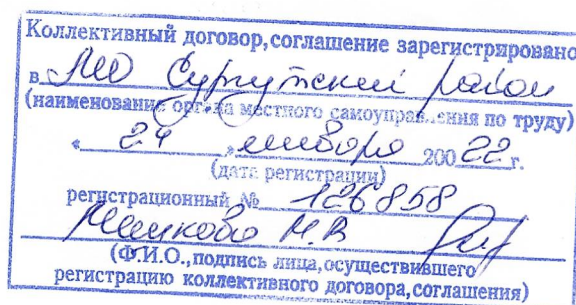 Коллективный договор, соглашение зарегистрировано
в МО Сургутский район
(наименование органа местного самоуправления по труду)
« 24 » января 200 22 г.
(дата регистрации)
регистрационный № 126858
Н.В
(Ф.И.О., подпись лица, осуществившего
регистрацию коллективного договора, соглашения)